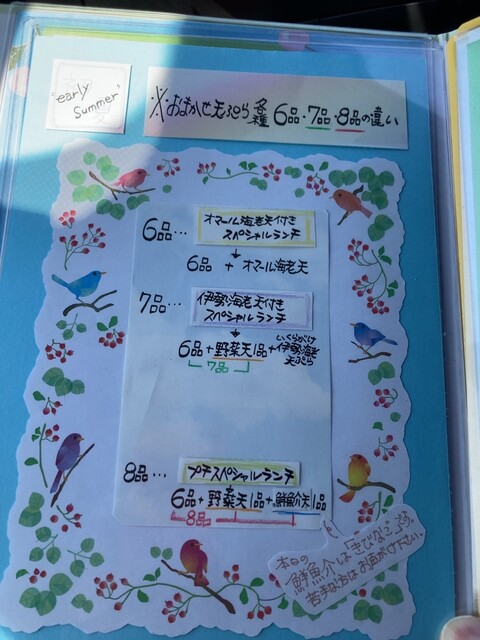 "early
Summer"
※おまかせ天ぷら各種 6品・7品・8品の違い
6品… オマール海老天付き
スペシャルランチ
↓
6品 + オマール海老天
7品… 伊勢海老天付き
スペシャルランチ
↓
6品+野菜天1品+いくらがけ伊勢海老天ぷら
7品
8品… プチスペシャルランチ
↓
6品+野菜天1品+鮮魚介天1品
8品
本日の
鮮魚介は「きびなご」です。
苦手な方はお声がけ下さい。